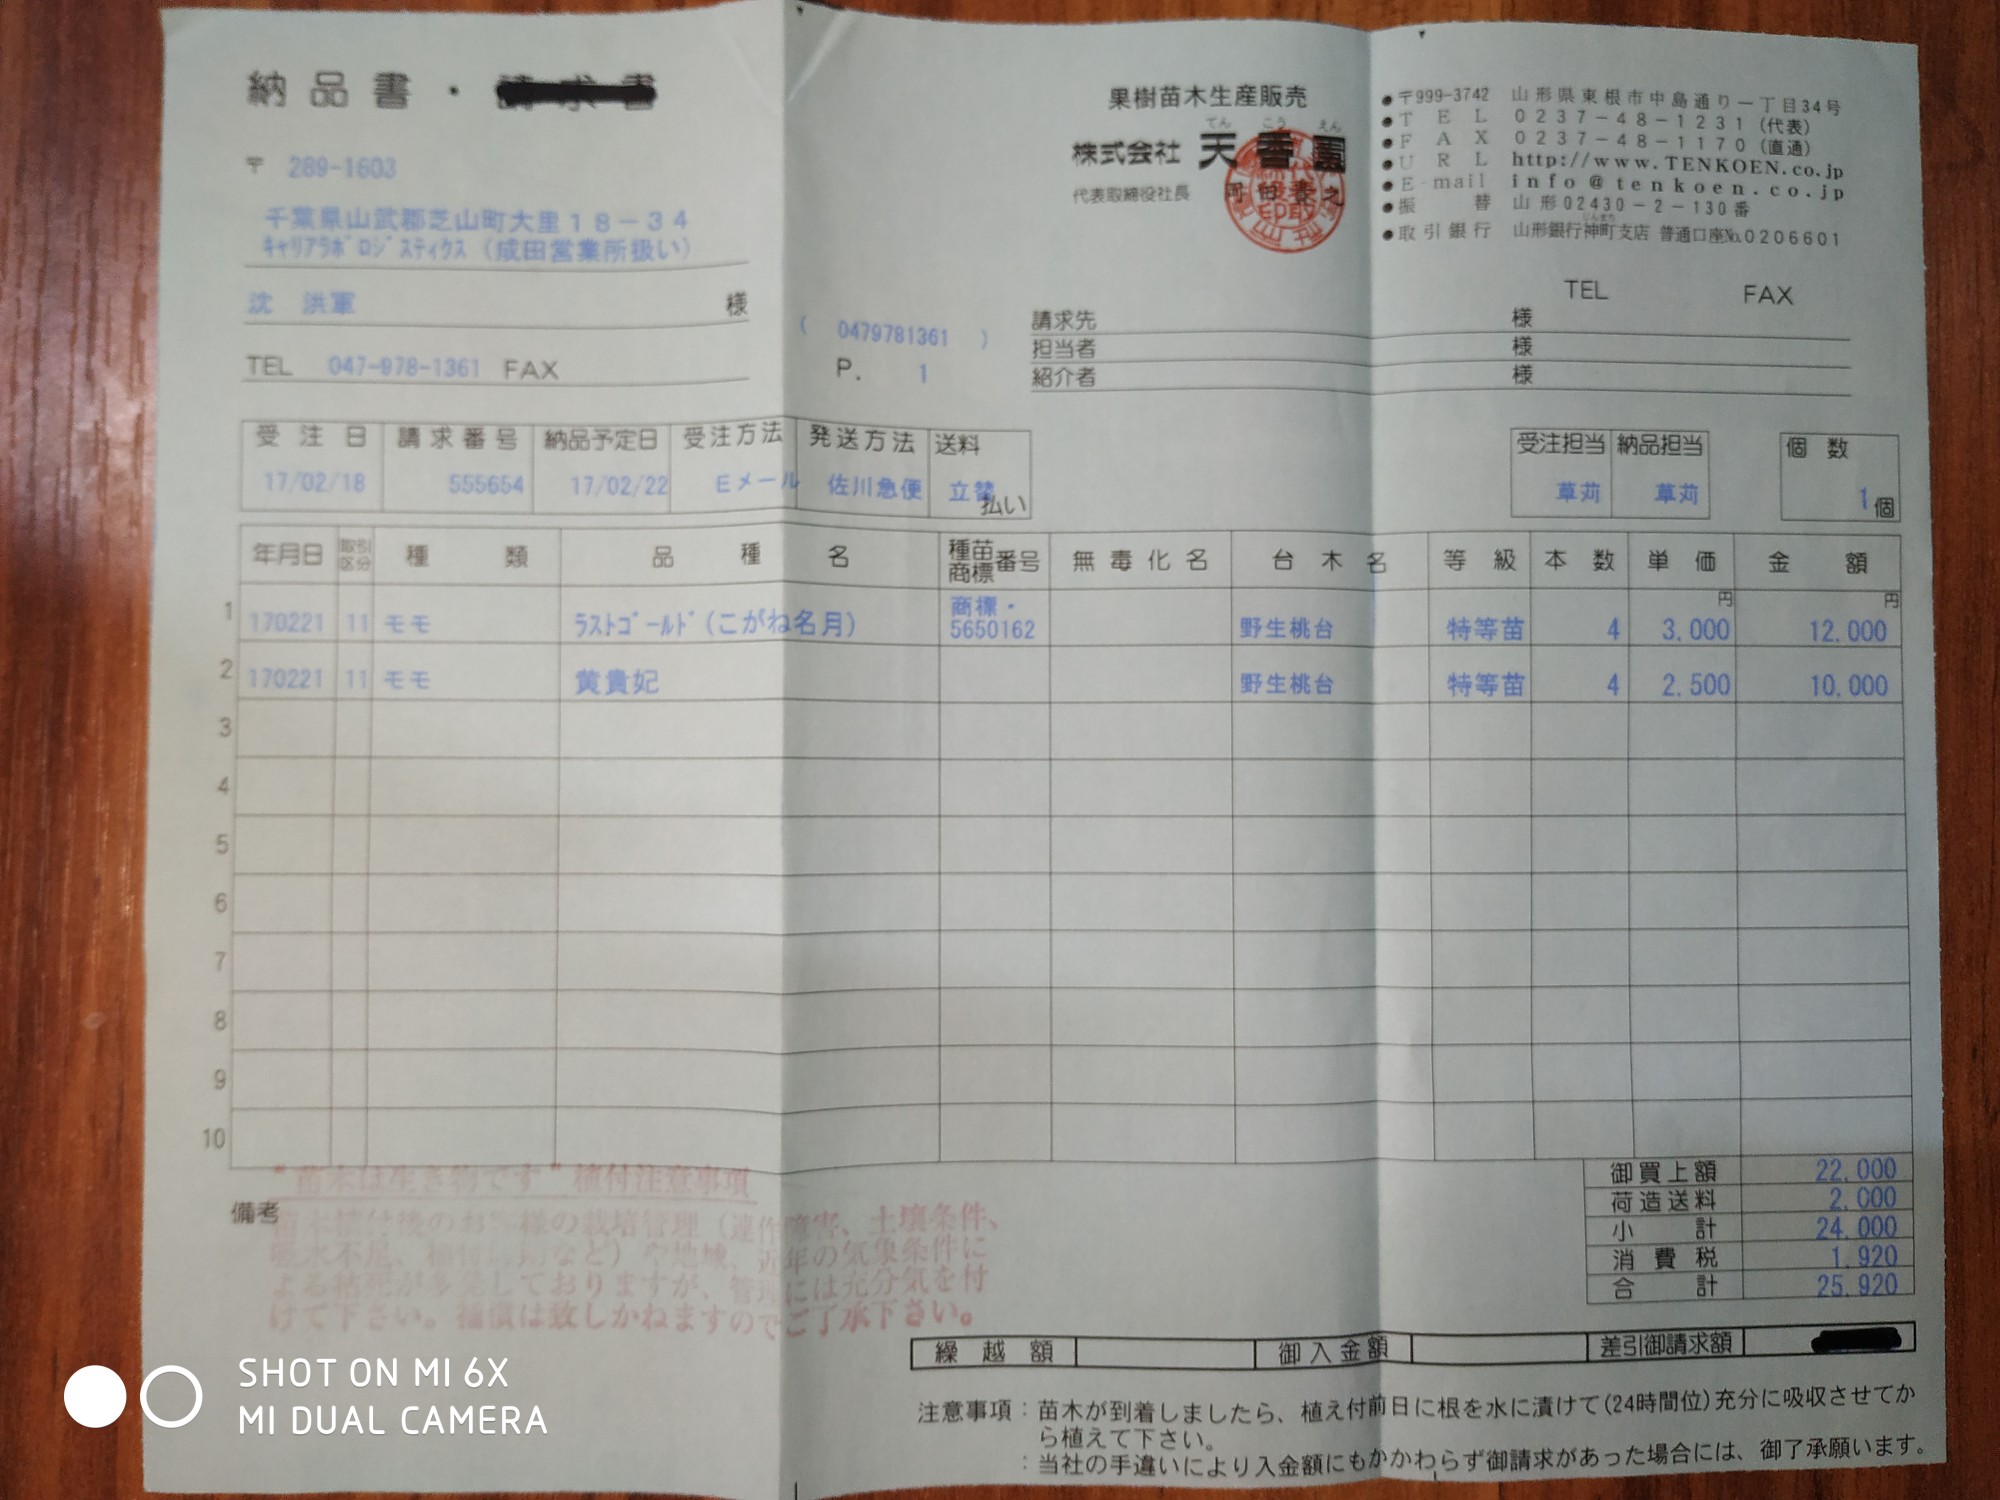 納品書・請求書
〒 289-1603
千葉県山武郡芝山町大里１８－３４
ｷｬﾘｱﾗﾎﾞﾛｼﾞｽﾃｨｸｽ（成田営業所扱い）
沈 洪軍 様
TEL 047-978-1361 FAX
( 0479781361 )
P. 1
果樹苗木生産販売
てん こう えん
株式会社 天香園
代表取締役社長
●〒999-3742 山形県東根市中島通り一丁目34号
●TEL 0237-48-1231(代表)
●FAX 0237-48-1170(直通)
●URL http://www.TENKOEN.co.jp
●E-mail info@tenkoen.co.jp
●振替 山形02430-2-130番
じんまち
●取引銀行 山形銀行神町支店 普通口座№0206601
TEL FAX
請求先 様
担当者 様
紹介者 様
受注日 請求番号 納品予定日 受注方法 発送方法 送料
17/02/18 555654 17/02/22 Eメール 佐川急便 立替払い
受注担当 納品担当
草苅 草苅
個数
1個
年月日 取引区分 種類 品種名 種苗商標番号 無毒化名 台木名 等級 本数 単価 金額
円 円
1 170221 11 モモ ﾗｽﾄｺﾞｰﾙﾄﾞ(こがね名月) 商標・5650162 野生桃台 特等苗 4 3,000 12,000
2 170221 11 モモ 黄貴妃 野生桃台 特等苗 4 2,500 10,000
3
4
5
6
7
8
9
10
御買上額 22,000
荷造送料 2,000
小計 24,000
消費税 1,920
合計 25,920
備考
"苗木は生き物です"植付注意事項
苗木植付後のお客様の栽培管理（連作障害、土壌条件、
吸水不足、植付時期など）や地域、近年の気象条件に
よる枯死が多発しておりますが、管理には充分気を付
けて下さい。補償は致しかねますのでご了承下さい。
繰越額 御入金額 差引御請求額
注意事項：苗木が到着しましたら、植え付前日に根を水に漬けて(24時間位)充分に吸収させてか
ら植えて下さい。
：当社の手違いにより入金額にもかかわらず御請求があった場合には、御了承願います。
SHOT ON MI 6X
MI DUAL CAMERA